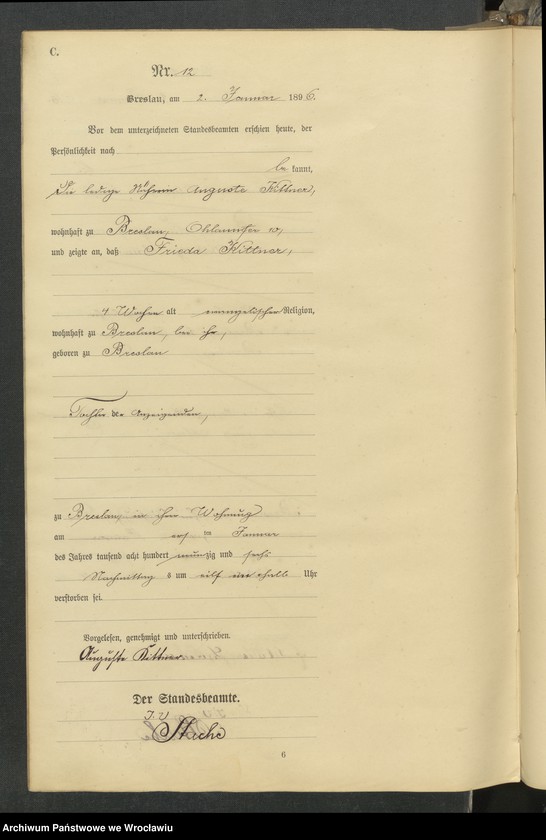 C.
Nr. 12
Breslau, am 2. Januar 1896.
Vor dem unterzeichneten Standesbeamten erschien heute, der
Persönlichkeit nach
be kannt,
die ledige Auguste Kittner,
wohnhaft zu Breslau,
und zeigte an, daß Frieda Kittner,
4 Wochen alt evangelischer Religion,
wohnhaft zu Breslau, bei ihr,
geboren zu Breslau
Tochter der Anzeigenden,
zu Breslau, in ihrer Wohnung
am im Januar
des Jahres tausend acht hundert neunzig und sechs
Nachmittag s um Uhr
verstorben sei.
Vorgelesen, genehmigt und unterschrieben.
Auguste Kittner
Der Standesbeamte.
I. V.
6
Archiwum Państwowe we Wrocławiu